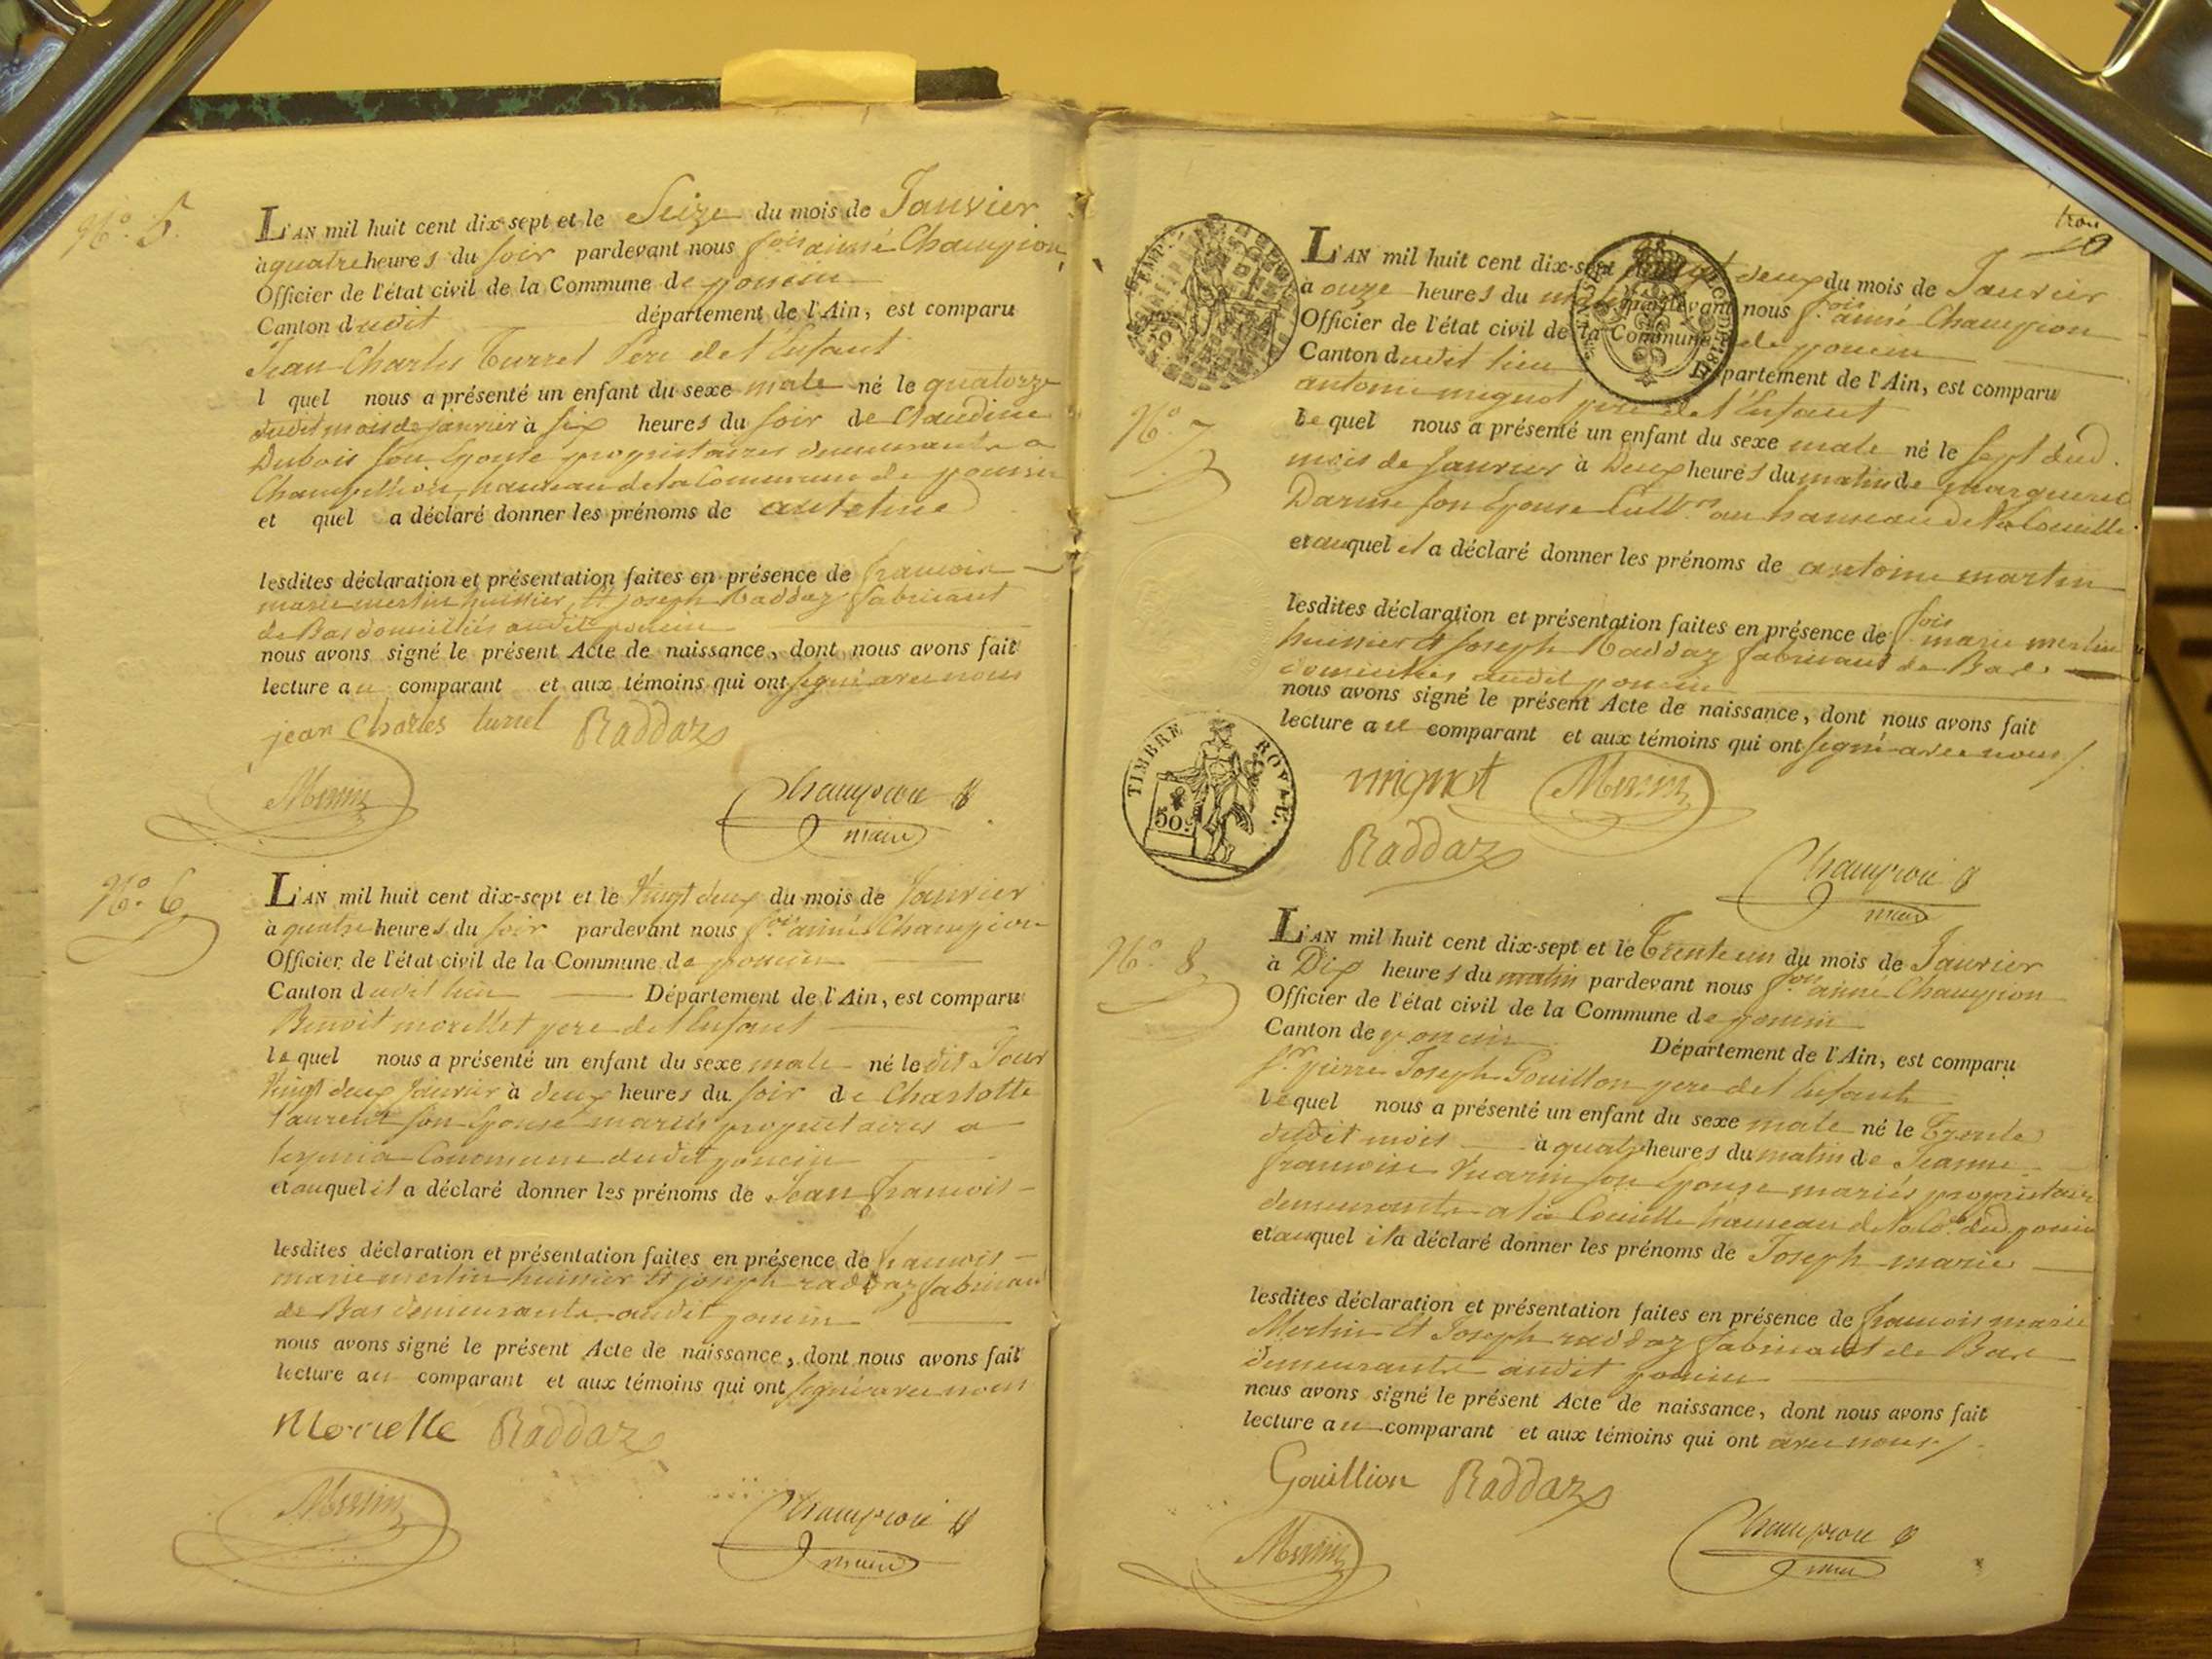 N.o 5.
L'AN mil huit cent dix-sept et le Seize du mois de Janvier
à quatre heures du soir pardevant nous f.ois aimé Champion
Officier de l'état civil de la Commune de poncin
Canton dudit département de l'Ain, est comparu
Jean Charles Turrel Pere de l'Enfant
l quel nous a présenté un enfant du sexe male né le quatorze
dudit mois de janvier à six heures du soir de Claudine
Dubois son Epouse propriétaires demeurants a
hameau de la Commune de poncin
et quel a déclaré donner les prénoms de
lesdites déclaration et présentation faites en présence de francois
marie merlin huissier, et joseph Raddaz fabricant
de Bas domiciliés audit poncin
nous avons signé le présent Acte de naissance, dont nous avons fait
lecture au comparant et aux témoins qui ont signé avec nous
jean Charles turrel Raddaz
Merlin Champion
maire
N.o 6
L'AN mil huit cent dix-sept et le Vingt deux du mois de Janvier
à quatre heures du soir pardevant nous f.ois aimé Champion
Officier de l'état civil de la Commune de poncin
Canton dudit lieu Département de l'Ain, est comparu
Benoit morellet pere de l'Enfant
le quel nous a présenté un enfant du sexe male né le dit Jour
Vingt deux Janvier à deux heures du soir de Charlotte
Laurent son Epouse mariés propriétaires a
Commune dudit poncin
et auquel il a déclaré donner les prénoms de Jean francois
lesdites déclaration et présentation faites en présence de francois
marie merlin huissier et joseph raddaz fabricant
de Bas demeurants audit poncin
nous avons signé le présent Acte de naissance, dont nous avons fait
lecture au comparant et aux témoins qui ont signé avec nous
Raddaz
Merlin Champion
maire
N.o 7
L'AN mil huit cent dix-sept vingt deux du mois de Janvier
à onze heures du matin pardevant nous f.ois aimé Champion
Officier de l'état civil de la Commune de poncin
Canton dudit lieu Département de l'Ain, est comparu
antoine mignot pere de l'Enfant
le quel nous a présenté un enfant du sexe male né le sept dud.
mois de Janvier à Deux heures du matin de
son Epouse Cult.rs au hameau de
et auquel il a déclaré donner les prénoms de antoine martin
lesdites déclaration et présentation faites en présence de f.ois marie merlin
huissier et Joseph Raddaz fabricant de Bas
domiciliés audit poncin
nous avons signé le présent Acte de naissance, dont nous avons fait
lecture au comparant et aux témoins qui ont signé avec nous
TIMBRE ROYAL.
50c
mignot Merlin
Raddaz
Champion
maire
N.o 8
L'AN mil huit cent dix-sept et le Trente un du mois de Janvier
à Dix heures du matin pardevant nous f.ois aimé Champion
Officier de l'état civil de la Commune de poncin
Canton de poncin Département de l'Ain, est comparu
S.r pierre Joseph Gouillon pere de l'Enfant
le quel nous a présenté un enfant du sexe male né le Trente
dudit mois à quatre heures du matin de Jeanne
francoise Vuarin son Epouse mariés propriétaires
demeurants a la hameau de la Co.e dud. poncin
et auquel il a déclaré donner les prénoms de Joseph marie
lesdites déclaration et présentation faites en présence de francois marie
Merlin et Joseph raddaz fabricant de Bas
demeurants audit poncin
nous avons signé le présent Acte de naissance, dont nous avons fait
lecture au comparant et aux témoins qui ont avec nous
Gouillion Raddaz
Merlin Champion
maire